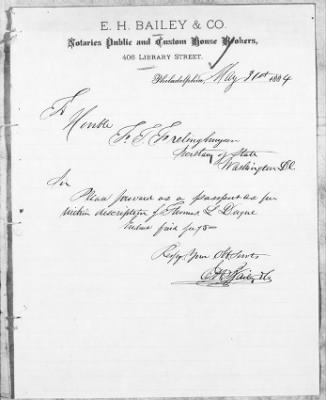 E. H. BAILEY & CO.
Notaries Public and Custom House Brokers,
406 LIBRARY STREET.
Philadelphia, May 31st 1884
To
Honble
F. T. Frelinghuysen
Secretary of State
Washington D.C.
Sir
Please forward us a passport as per
within description of Thomas L
Respy Your Obt Servts
E H Bailey & Co